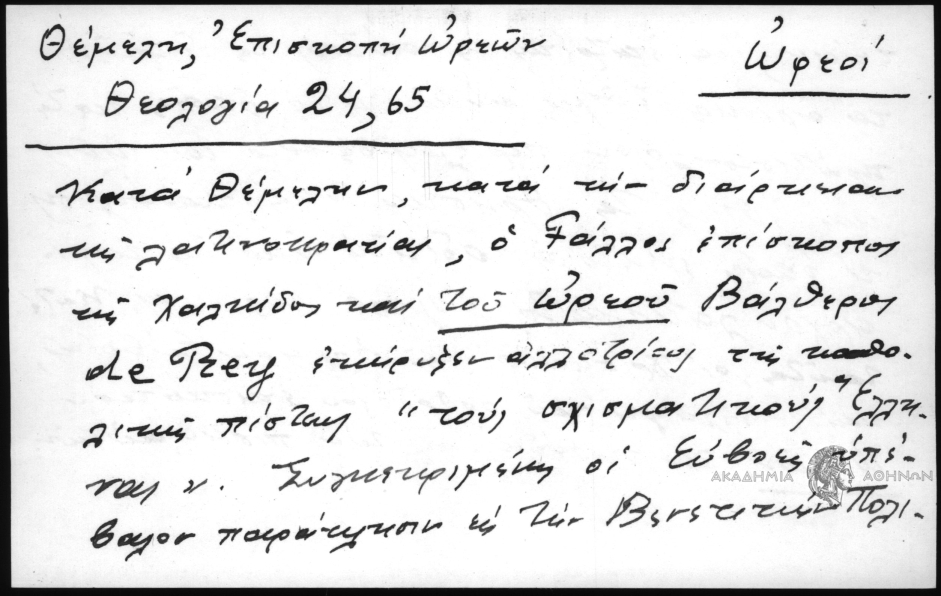 Θέμελη, Ἐπισκοπή Ὠρεῶν
Ὠρεοί
Θεολογία 24, 65
Κατά Θέμελην, κατά τήν διάρκειαν
τῆς λατινοκρατίας, ὁ Γάλλος ἐπίσκοπος
τῆς Χαλκίδος καί τοῦ Ὠρεοῦ Βάλθερος
de Rey ἐκήρυξεν ἀλλοτρίους τῆς καθο-
λικῆς πίστεως "τούς σχισματικούς" Ἕλλη-
νας ν. Συγκεκριμένης οἱ Εὐβοεῖς ὑπέ-
βαλον παραίτησιν εἰς τήν Βενετικήν Πολι-
ΑΚΑΔΗΜΙΑ ΑΘΗΝΩΝ